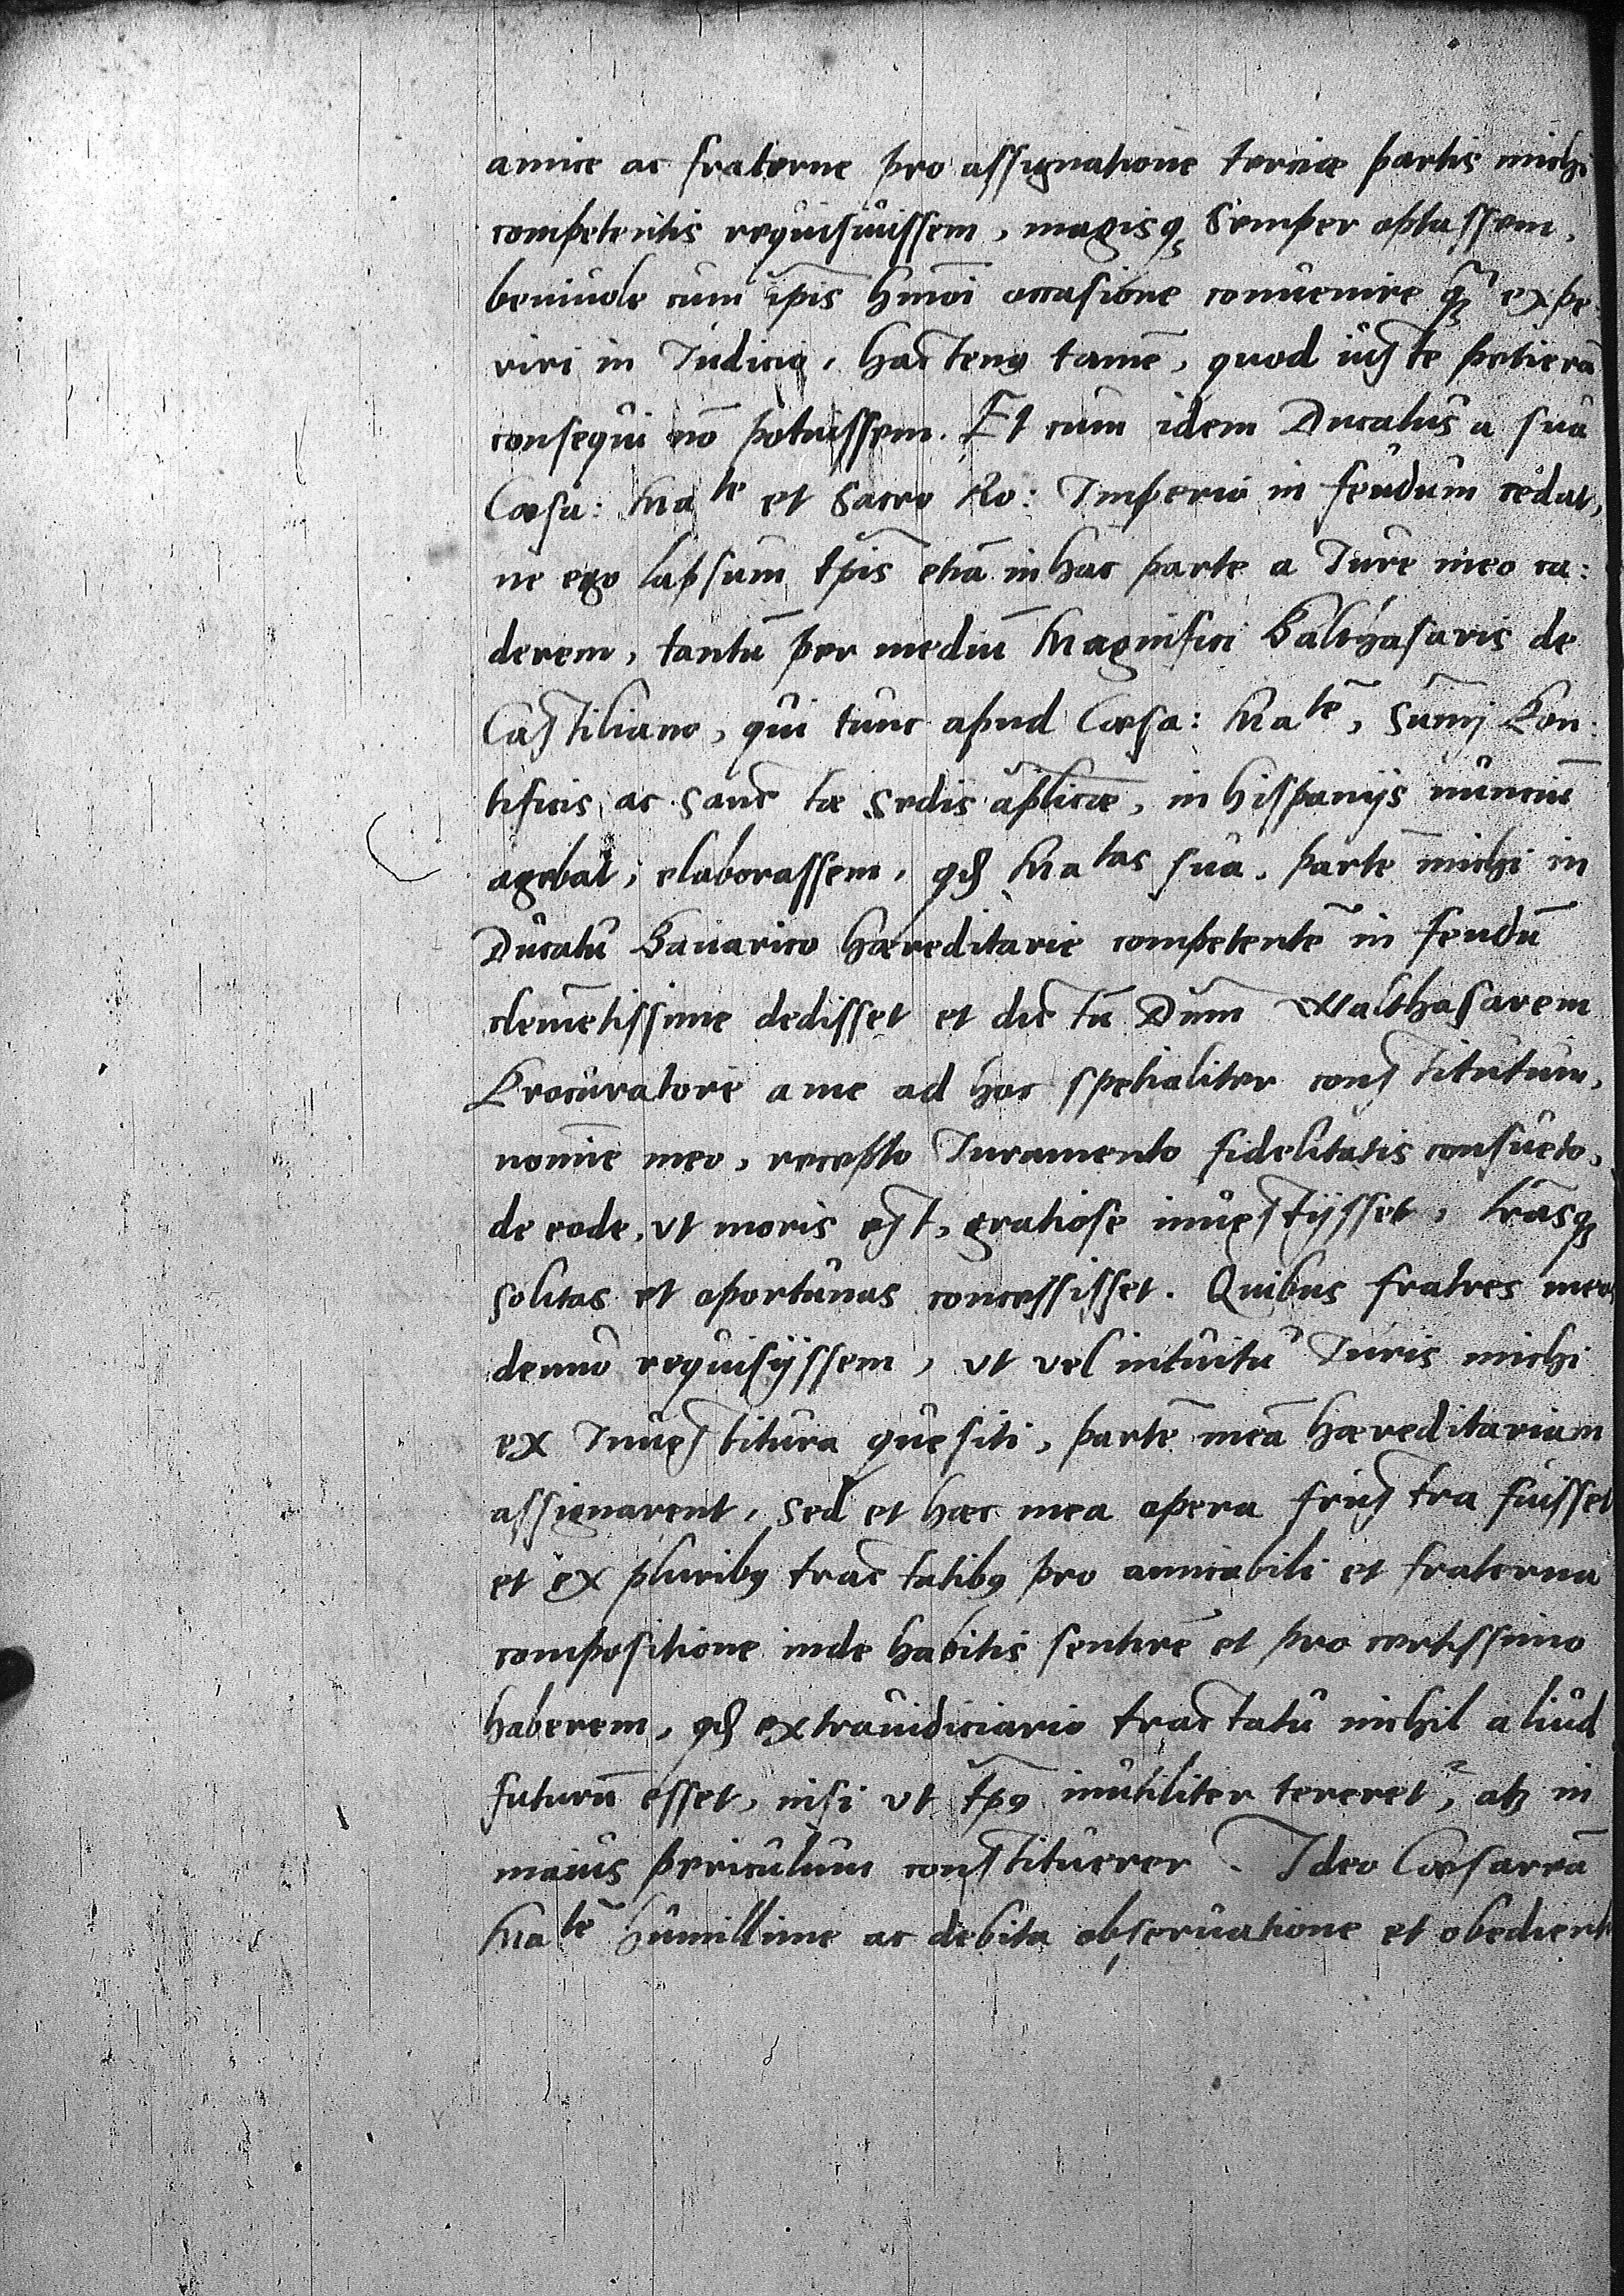 amice ac fraterne pro assignatione terciæ partis michi
competentis requisiuissem, magisq₃ semper optassem,
beniuole cum ip̄is hm̄oi occasione conuenire q̃₃ expe
riri in Judicio, hactenꝰ tamē, quod iuste petierā
consequi nō potuissem. Et cum idem Ducatus a sua
Cæsa: Maᵗᵉ et Sacro Ro: Imperio in feudum cedat,
ne ego lapsum tp̄is etiā in hac parte a Jure meo ca:
derem, tantū per mediū Magnifici Balthasaris de
Castiliano, qui tunc apud Cæsa: Maᵗē, Sum̄j Pon:
tificis ac sanctæ sedis ap̄licæ, in hispanijs nunciū
agebat, elaborassem, qđ Maᵗᵃˢ sua, partē michi in
Ducatu Bauarico hæreditarie competentē in feudū
clemētissime dedisset et dictū Dn̄m Walthasarem
Procuratorē a me ad hoc spetialiter constitutum,
nomīe meo, recepto Juramento fidelitatis consueto,
de eodē, vt moris est, gratiose inuestijsset, lr̄asq₃
solitas et oportunas concessisset. Quibus fratres meos
denuo requisijssem, vt vel intuitu Juris michi
ex Inuestitura quesiti, partē meā hæreditariam
assignarent, sed et hæc mea opera frustra fuisset
et ex pluribꝰ tractatibꝰ pro amicabili et fraterna
compositione inde habitis sentirē et pro certissimo
haberem, qđ extraiudiciario tractatu nichil aliud
futurū esset, nisi vt tp̄ꝰ inutiliter tereret᷑, atq₃ in
maius periculum constituerer. Ideo Cæsareā
Maᵗē humillime ac debita obseruatione et obedient